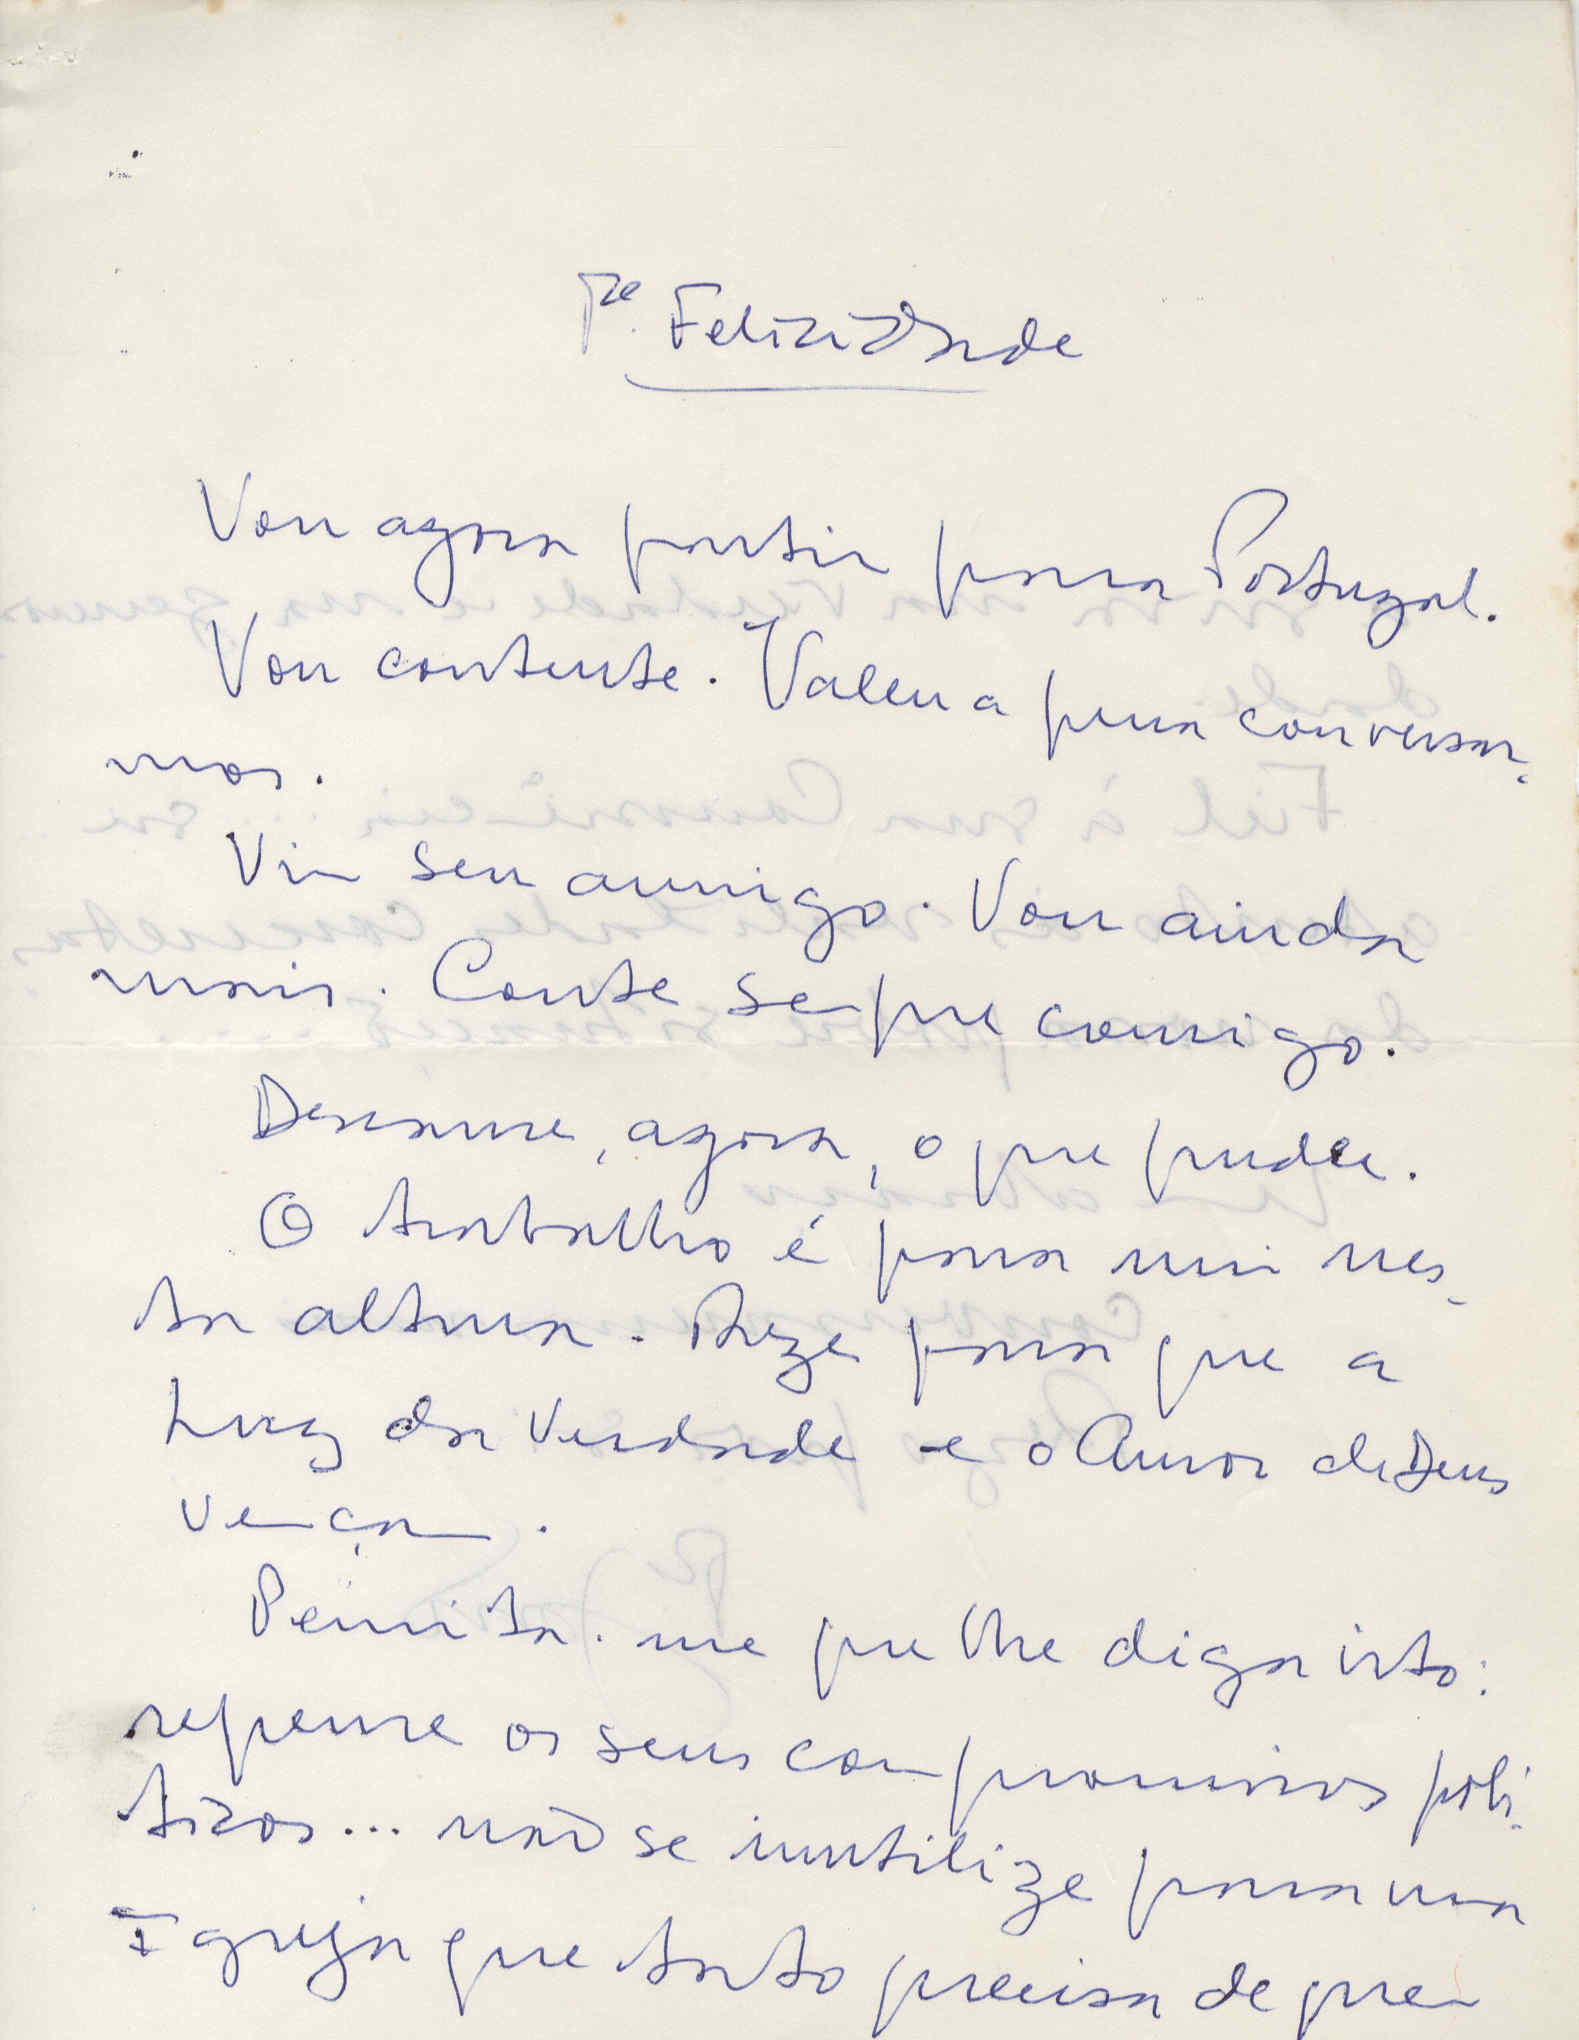 Pe. Felicidade
Vou agora partir para Portugal.
Vou contente. Valeu a pena conversar-
mos.
Vim seu amigo. Vou ainda
mais. Conte sempre comigo.
Descanse, agora, o que puder.
O trabalho é para mim nes-
ta altura. Reze para que a
Luz da Verdade e o Amor de Deus
vençam.
Permita-me que lhe diga isto:
repense os seus compromissos polí-
ticos... não se inutilize para uma
Igreja que tanto precisa de quem